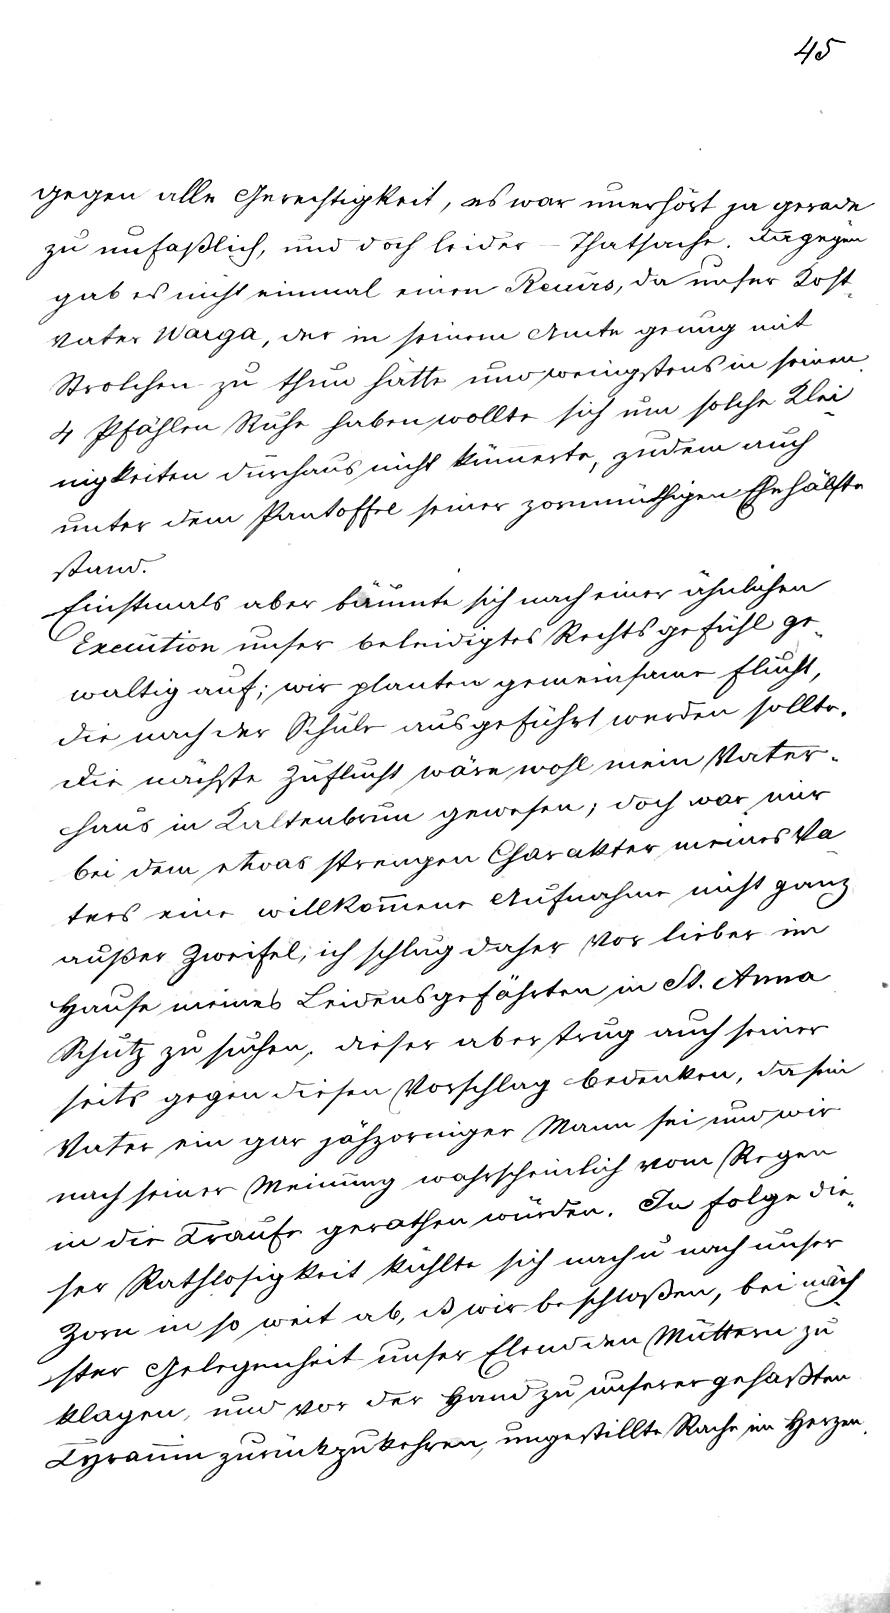 45
gegen alle Gerechtigkeit, es war unerhört ja gerade
zu unfaßlich, und doch leider – Thatsache. Dagegen
gab es nicht einmal einen Recurs, da unser Kost-
vater Warga, der in seinem Amte genug mit
Strolchen zu thun hatte und wenigstens in seinen
4 Pfählen Ruhe haben wollte sich um solche Klei-
nigkeiten durchaus nicht küm̄erte, zudem auch
unter dem Pantoffel seiner zornmüthigen Ehehälfte
stand.
Einstmals aber bäumte sich nach einer ähnlichen
Execution unser beleidigtes Rechtsgefühl ge-
waltig auf; wir planten gemeinsame Flucht,
die nach der Schule ausgeführt werden sollte.
Die nächste Zuflucht wäre wohl mein Vater-
haus in Kaltenbrun gewesen; doch war mir
bei dem etwas strengen Charakter meines Va-
ters eine willkom̄ene Aufnahme nicht ganz
außer Zweifel; ich schlug daher vor lieber im
Hause meines Leidensgefährten in St. Anna
Schutz zu suchen, dieser aber trug auch seiner
seits gegen diesen Vorschlag bedenken, da sein
Vater ein gar jähzorniger Mann sei und wir
nach seiner Meinung wahrscheinlich vom Regen
in die Traufe gerathen würden. In Folge die-
ser Rathlosigkeit kühlte sich nach u nach unser
Zorn in so weit ab, ß wir beschloßen, bei näch
ster Gelegenheit unser Elend den Müttern zu
klagen, und vor der Hand zu unserer gehaßten
Tyran̄in zurückzukehren, ungestillte Rache im Herzen.